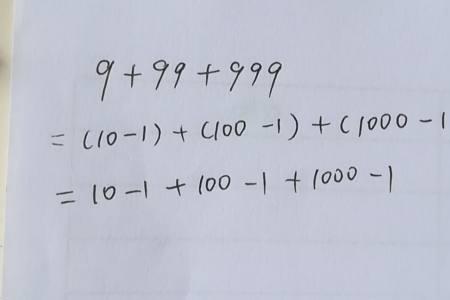 9+99+999
=(10-1)+(100-1)+(1000-1
=10-1+100-1+1000-1